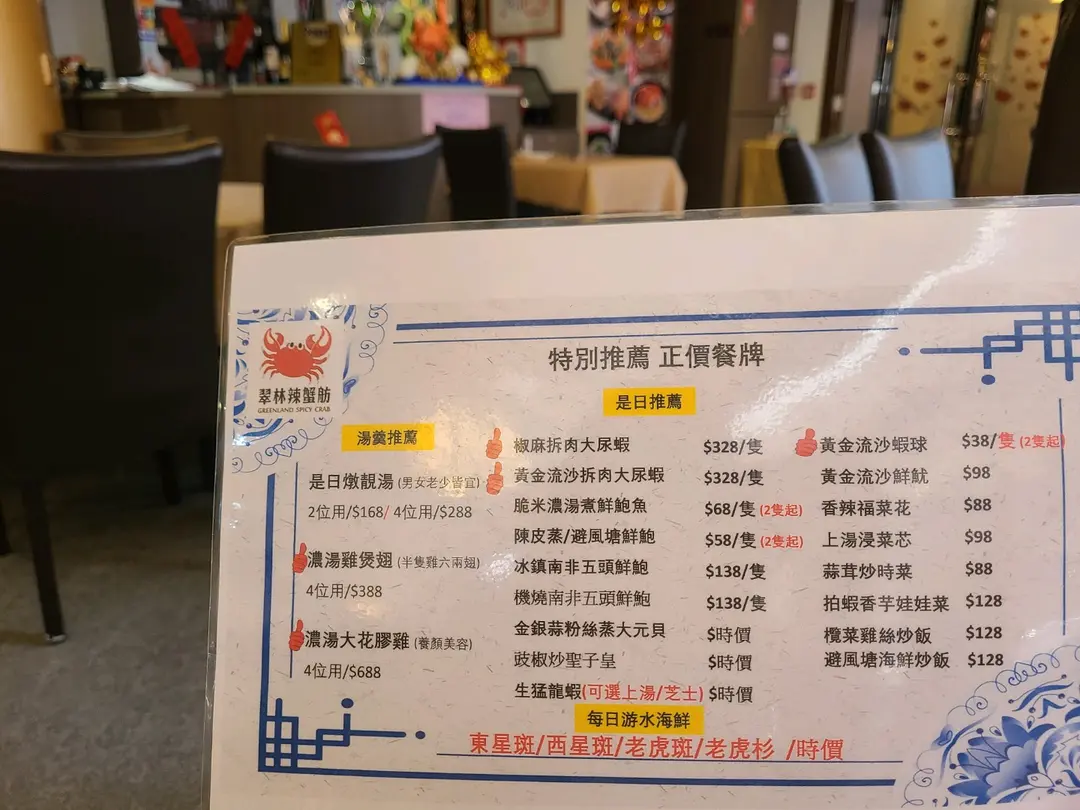 翠林辣蟹舫
GREENLAND SPICY CRAB
特別推薦 正價餐牌
湯羹推薦
是日燉靚湯 (男女老少皆宜)
2位用/$168/ 4位用/$288
濃湯雞煲翅 (半隻雞六兩翅)
4位用/$388
濃湯大花膠雞 (養顏美容)
4位用/$688
是日推薦
椒麻拆肉大尿蝦 $328/隻
黃金流沙拆肉大尿蝦 $328/隻
脆米濃湯煮鮮鮑魚 $68/隻 (2隻起)
陳皮蒸/避風塘鮮鮑 $58/隻 (2隻起)
冰鎮南非五頭鮮鮑 $138/隻
機燒南非五頭鮮鮑 $138/隻
金銀蒜粉絲蒸大元貝 $時價
豉椒炒聖子皇 $時價
生猛龍蝦(可選上湯/芝士) $時價
黃金流沙蝦球 $38/隻 (2隻起)
黃金流沙鮮魷 $98
香辣福菜花 $88
上湯浸菜芯 $98
蒜茸炒時菜 $88
拍蝦香芋娃娃菜 $128
欖菜雞絲炒飯 $128
避風塘海鮮炒飯 $128
每日游水海鮮
東星斑/西星斑/老虎斑/老虎杉 /時價